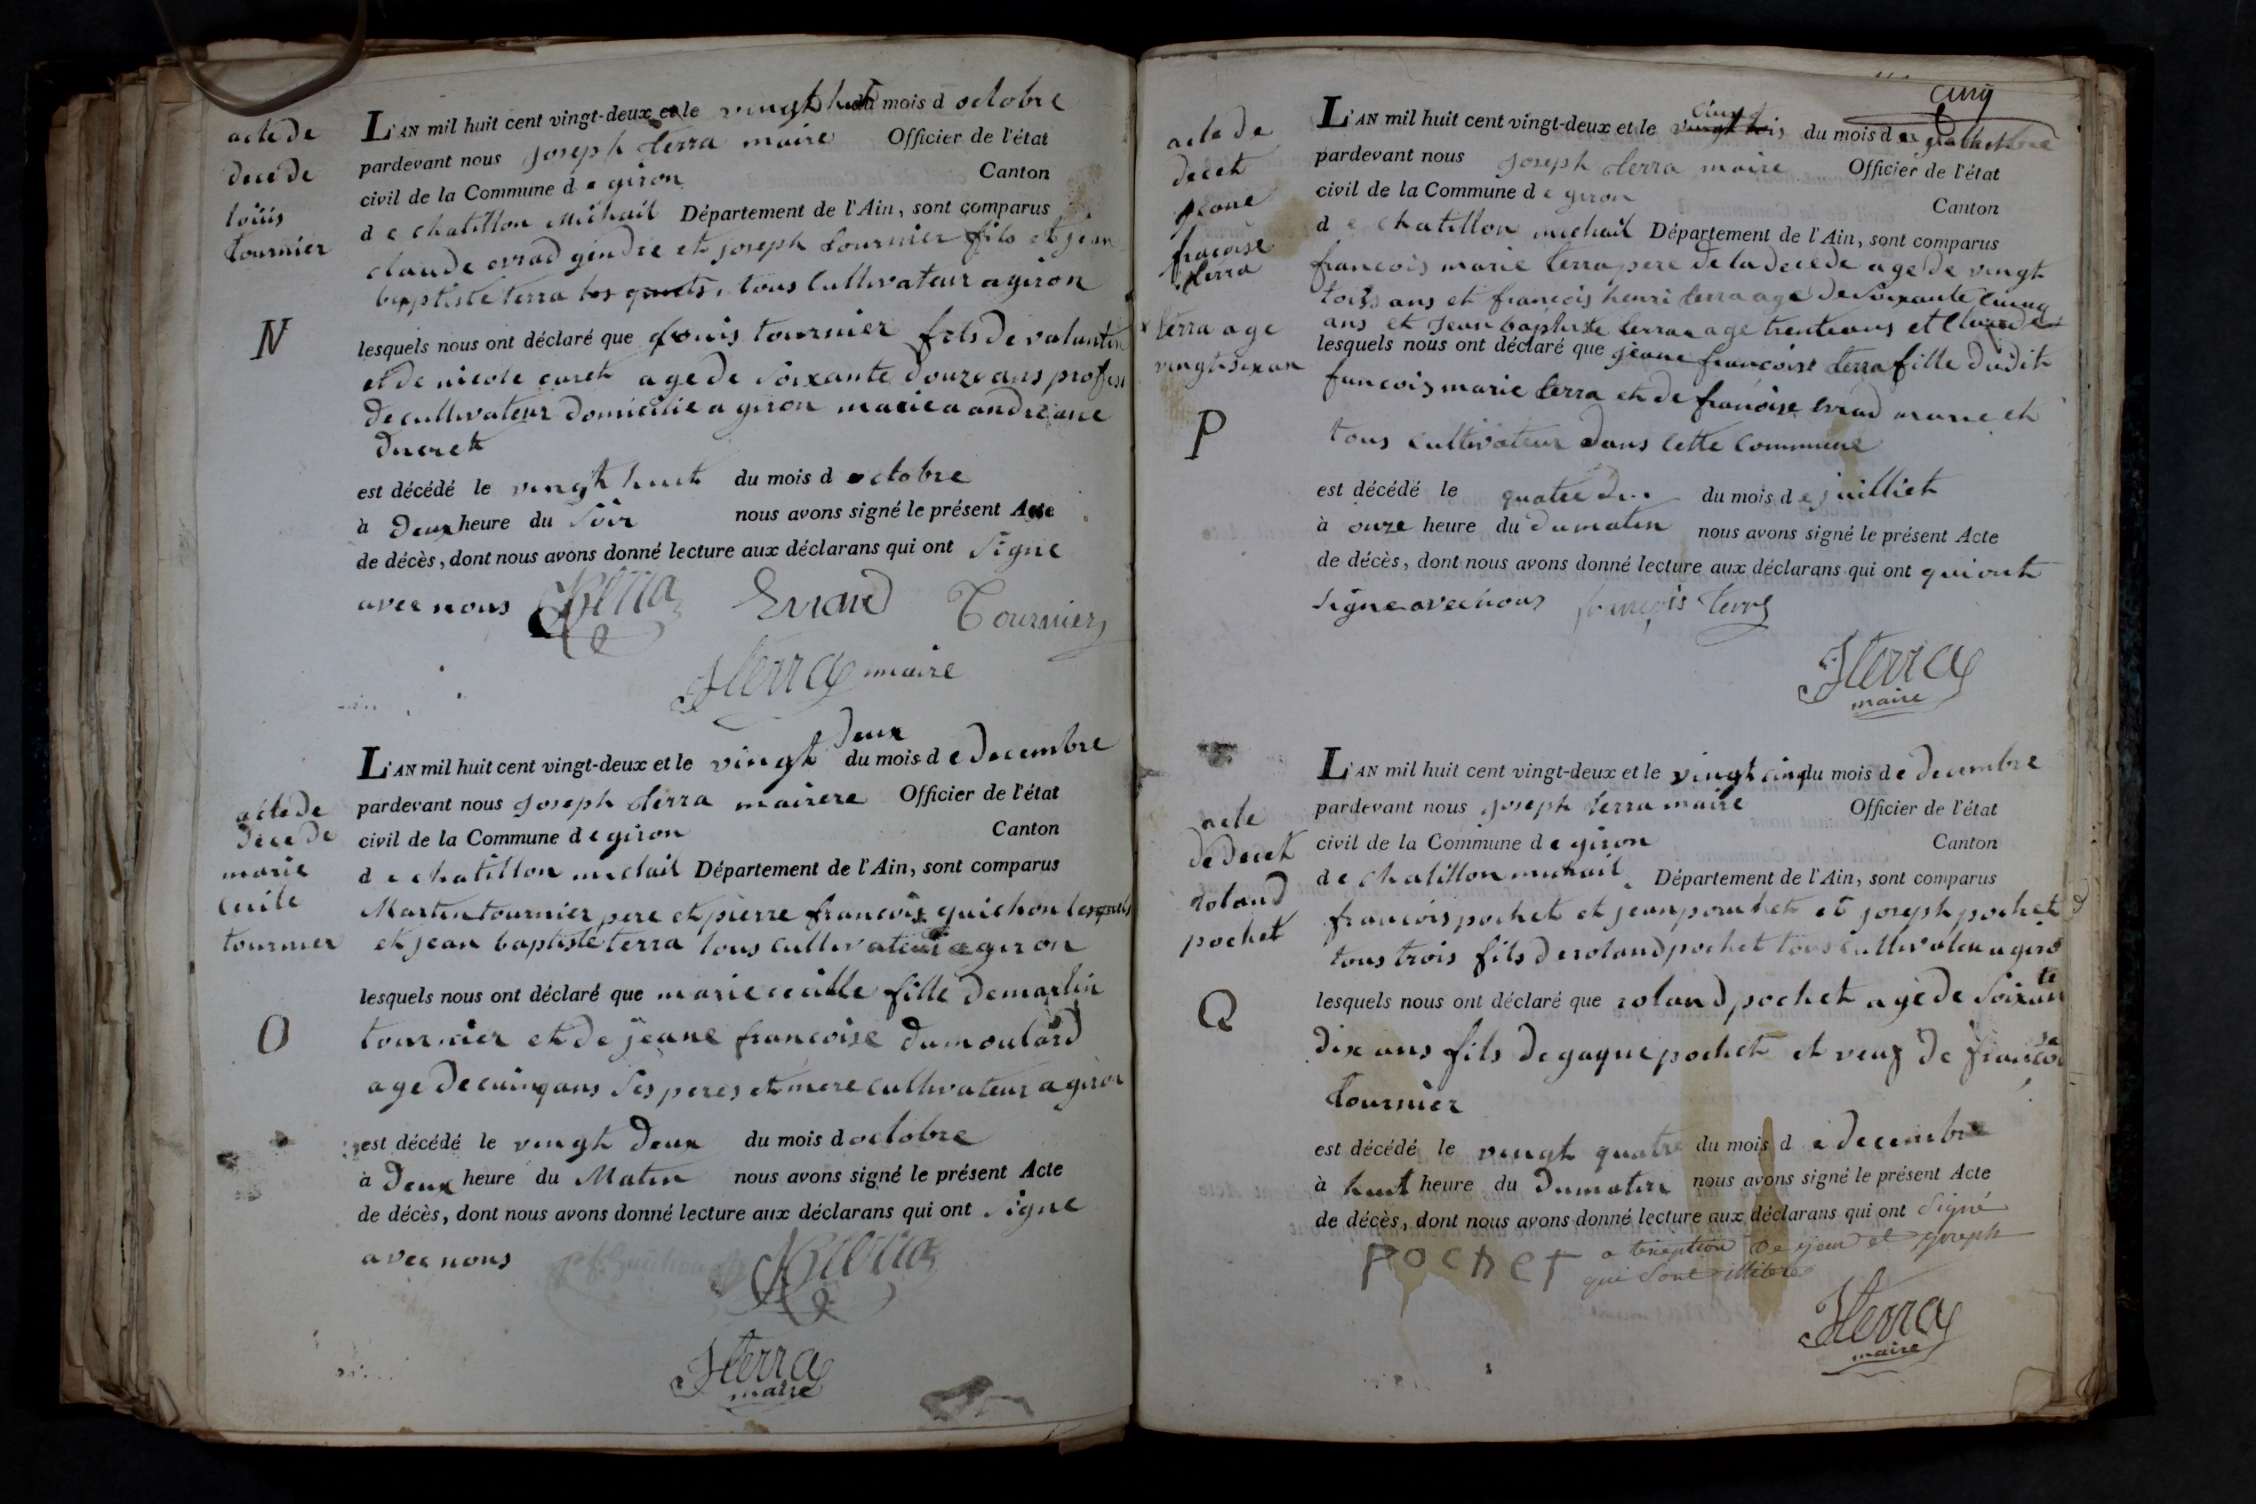 acte de
decé de
loüis
tournier
N
L'AN mil huit cent vingt-deux et le vingt huit du mois d octobre
pardevant nous joseph terra maire Officier de l'état
civil de la Commune d e giron Canton
d e chatillon michail Département de l'Ain, sont comparus
claude evrad gendre et joseph tournier fils et jean
baptiste terra tous cultivateur a giron
lesquels nous ont déclaré que louis tournier fils de valantin
et de nicole curet age de soixante douze ans
de cultivateur domicilié a giron marie a andreane
ducret
est décédé le vingt huit du mois d octobre
à deux heure du soir nous avons signé le présent Acte
de décès, dont nous avons donné lecture aux déclarans qui ont signe
avec nous Terra Evrard Tournier
J Terra maire
acte de
dece de
marie
cecile
tournier
O
L'AN mil huit cent vingt-deux et le vingt deux du mois d e decembre
pardevant nous joseph terra mairere Officier de l'état
civil de la Commune d e giron Canton
d e chatillon michail Département de l'Ain, sont comparus
Martin tournier pere et pierre francois guichon
et jean baptiste terra tous cultivateur a giron
lesquels nous ont déclaré que marie cecille fille de martin
tournier et de jeane francoise dumoulard
age de cuinq ans ses peres et mere cultivateur a giron
est décédé le vingt deux du mois d octobre
à deux heure du Matin nous avons signé le présent Acte
de décès, dont nous avons donné lecture aux déclarans qui ont signe
avec nous Terra
J Terra
maire
cinq
acte de
decet
jeane
fracoise
terra
terra age
vingt six an
P
L'AN mil huit cent vingt-deux et le cinq du mois d e
pardevant nous joseph terra maire Officier de l'état
civil de la Commune d e giron Canton
d e chatillon michail Département de l'Ain, sont comparus
francois marie terra pere de la decede age de vingt
ans et francois henri terra age de soixante cuinq
ans et jean baptiste terra age trente ans et
lesquels nous ont déclaré que jeane francoise terra fille dudit
francois marie terra et de francoise evrad marie et
tous cultivateur dans cette commune
est décédé le quatre du mois d e juilliet
à onze heure du du matin nous avons signé le présent Acte
de décès, dont nous avons donné lecture aux déclarans qui ont qui ont
signe avec nous francois terra
J Terra
maire
acte
de decet
roland
pochet
Q
L'AN mil huit cent vingt-deux et le vingt cinq du mois d e decembre
pardevant nous joseph terra maire Officier de l'état
civil de la Commune d e giron Canton
d e chatillon michail Département de l'Ain, sont comparus
francois pochet et jean pochet et joseph pochet
tous trois fils de roland pochet tous cultivateu a giro
lesquels nous ont déclaré que roland pochet age de soixante
dix ans fils de gaque pochet et veuf de francoise
tournier
est décédé le vingt quatre du mois d e decembre
à huit heure du du matin nous avons signé le présent Acte
de décès, dont nous avons donné lecture aux déclarans qui ont signé
POCHET a lexeption de jean et joseph
qui sont illiteres
J Terra
maire